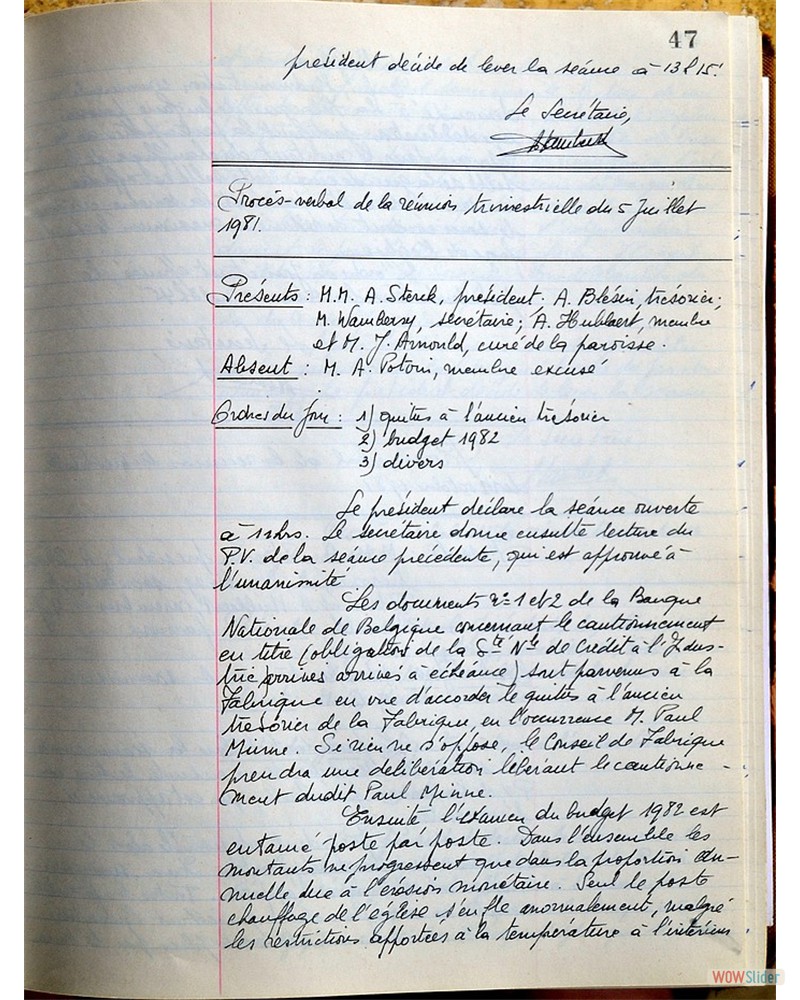 47
président décide de lever la séance à 13h15!
Le Secrétaire,
Procès-verbal de la réunion trimestrielle du 5 Juillet
1981.
Présents : M.M. A. Sterck, président. A. Blésin, trésorier;
M. Wambersy, secrétaire; A. Hublaert, membre
et M. J. Arnould, curé de la paroisse.
Absent : M. A. Potvin, membre excusé
Ordres du jour : 1) quitus à l'ancien trésorier
2) budget 1982
3) divers
Le président déclare la séance ouverte
à 12hrs. Le secrétaire donne ensuite lecture du
P.V. de la séance précédente, qui est approuvé à
l'unanimité
Les documents n° 1 et 2 de la Banque
Nationale de Belgique concernant le cautionnement
en titre (obligation de la Sté Nle de Crédit à l'Indus-
trie arrivés à échéance) sont parvenus à la
Fabrique en vue d'accorder le quitus à l'ancien
trésorier de la Fabrique, en l'occurrence M. Paul
Minne. Si rien ne s'oppose, le Conseil de Fabrique
prendra une délibération libérant le cautionne-
ment dudit Paul Minne.
Ensuite l'examen du budget 1982 est
entamé poste par poste. Dans l'ensemble les
montants ne progressent que dans la proportion an-
nuelle due à l'érosion monétaire. Seul le poste
chauffage de l'église s'enfle anormalement, malgré
les restrictions apportées à la température à l'intérieur
WOWSlider